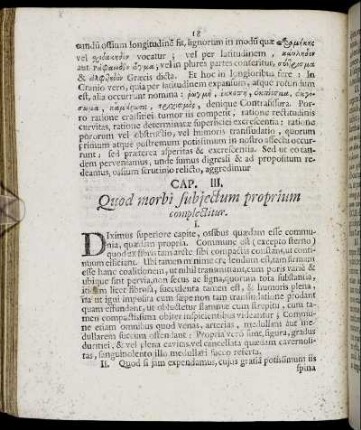 18
cundũ ossium longitudinẽ fit, lignorum in modũ quæ
vel vocatur; vel per latitudinem,
vel in plures partes conteritur,
& Græcis dicta. Et hoc in longioribus fere: in
Cranio vero, quia per latitudinem expansum, atque rotundum
est, alia occurrunt nomina:
denique Contrafissura. Por-
ro ratione crassitiei tumor iis competit, ratione rectitudinis
curvitas, ratione determinatæ superficiei excrescentia: ratione
pororum vel obstructio, vel humoris transudatio, quorum
primum atque postremum potissimum in nostro affectu occur-
runt; sed præterea asperitas & excrescentia. Sed ut eo tan-
dem perveniamus, unde sumus digressi & ad propositum re-
deamus, ossium scrutinio relicto, aggredimur
CAP. III.
Quod morbi subjectum proprium
complectitur.
I.
DIximus superiore capite, ossibus quædam esse commu-
nia, quædam propria. Commune est (excepto sterno)
quod ex fibris tam arcte sibi compactis constant, ut conti-
nuum efficiant. Ubi tamen
esse hanc coalitionem, ut nihil transmittant, cum poris variè &
ubique sint pervia, non secus ac ligna, quorum tota substantia,
itidem licet fibrosa, succulenta tamen est, & humoris plena,
ita ut igni imposita cum sæpe non tam transudatione prodant
quam effundant, ut obductetur flammæ cum strepitu, cum ta-
men compactissima obiter inspicientibus videantur; Commu-
ne etiam omnibus quod venas, arterias, medullam aut me-
dullarem succum ossent: Propria vero sunt, figura, gradus
duritiei, & vel plena cavitas vel cancellata quædam caverno-
sitas, sanguinolento illo medullari succo referta.
II. Quod si jam expendamus, cujus gratiâ potissimum iis
spina